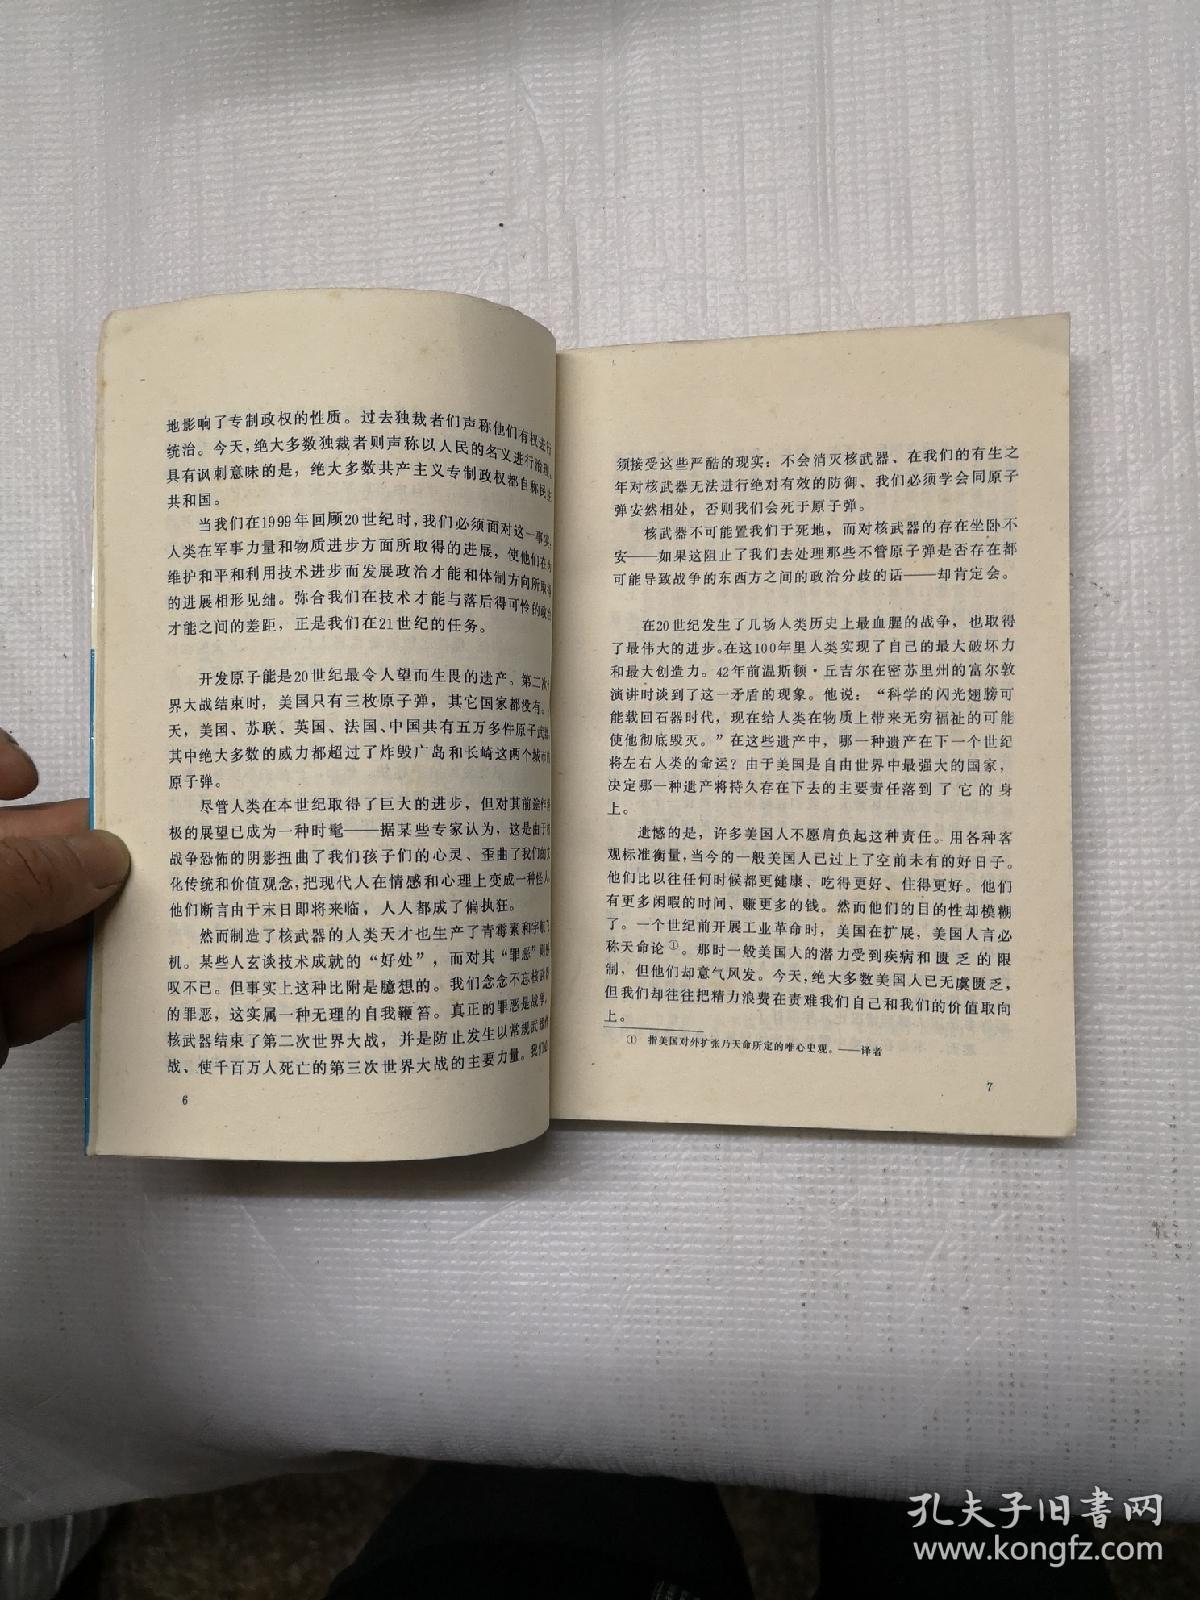 地影响了专制政权的性质。过去独裁者们声称他们有权进行
统治。今天，绝大多数独裁者则声称以人民的名义进行治理。
具有讽刺意味的是，绝大多数共产主义专制政权都自称民主
共和国。
当我们在1999年回顾20世纪时，我们必须面对这一事实，
人类在军事力量和物质进步方面所取得的进展，使他们在为
维护和平和利用技术进步而发展政治才能和体制方向所取得
的进展相形见绌。弥合我们在技术才能与落后得可怜的政治
才能之间的差距，正是我们在21世纪的任务。
开发原子能是20世纪最令人望而生畏的遗产、第二次
界大战结束时，美国只有三枚原子弹，其它国家都没有。
天，美国、苏联、英国、法国、中国共有五万多件原子武器
其中绝大多数的威力都超过了炸毁广岛和长崎这两个城市
原子弹。
尽管人类在本世纪取得了巨大的进步，但对其前途
极的展望已成为一种时髦——据某些专家认为，这是由于
战争恐怖的阴影扭曲了我们孩子们的心灵、歪曲了我们的文
化传统和价值观念，把现代人在情感和心理上变成一种怪人。
他们断言由于末日即将来临，人人都成了偏执狂。
然而制造了核武器的人类天才也生产了青霉素和宇航飞
机。某些人玄谈技术成就的“好处”，而对其“罪恶”则
叹不已。但事实上这种比附是臆想的。我们念念不忘核武器
的罪恶，这实属一种无理的自我鞭笞。真正的罪恶是战争。
核武器结束了第二次世界大战，并是防止发生以常规武器作
战、使千百万人死亡的第三次世界大战的主要力量。我们
6
须接受这些严酷的现实：不会消灭核武器、在我们的有生之
年对核武器无法进行绝对有效的防御、我们必须学会同原子
弹安然相处，否则我们会死于原子弹。
核武器不可能置我们于死地，而对核武器的存在坐卧不
安——如果这阻止了我们去处理那些不管原子弹是否存在都
可能导致战争的东西方之间的政治分歧的话——却肯定会。
在20世纪发生了几场人类历史上最血腥的战争，也取得
了最伟大的进步。在这100年里人类实现了自己的最大破坏力
和最大创造力。42年前温斯顿·丘吉尔在密苏里州的富尔敦
演讲时谈到了这一矛盾的现象。他说：“科学的闪光翅膀可
能载回石器时代，现在给人类在物质上带来无穷福祉的可能
使他彻底毁灭。”在这些遗产中，哪一种遗产在下一个世纪
将左右人类的命运？由于美国是自由世界中最强大的国家，
决定那一种遗产将持久存在下去的主要责任落到了它的身
上。
遗憾的是，许多美国人不愿肩负起这种责任。用各种客
观标准衡量，当今的一般美国人已过上了空前未有的好日子。
他们比以往任何时候都更健康、吃得更好、住得更好。他们
有更多闲暇的时间、赚更多的钱。然而他们的目的性却模糊
了。一个世纪前开展工业革命时，美国在扩展，美国人言必
称天命论①。那时一般美国人的潜力受到疾病和匮乏的限
制，但他们却意气风发。今天，绝大多数美国人已无虞匮乏，
但我们却往往把精力浪费在责难我们自己和我们的价值取向
上。
① 指美国对外扩张乃天命所定的唯心史观。——译者
7
孔夫子旧书网
www.kongfz.com